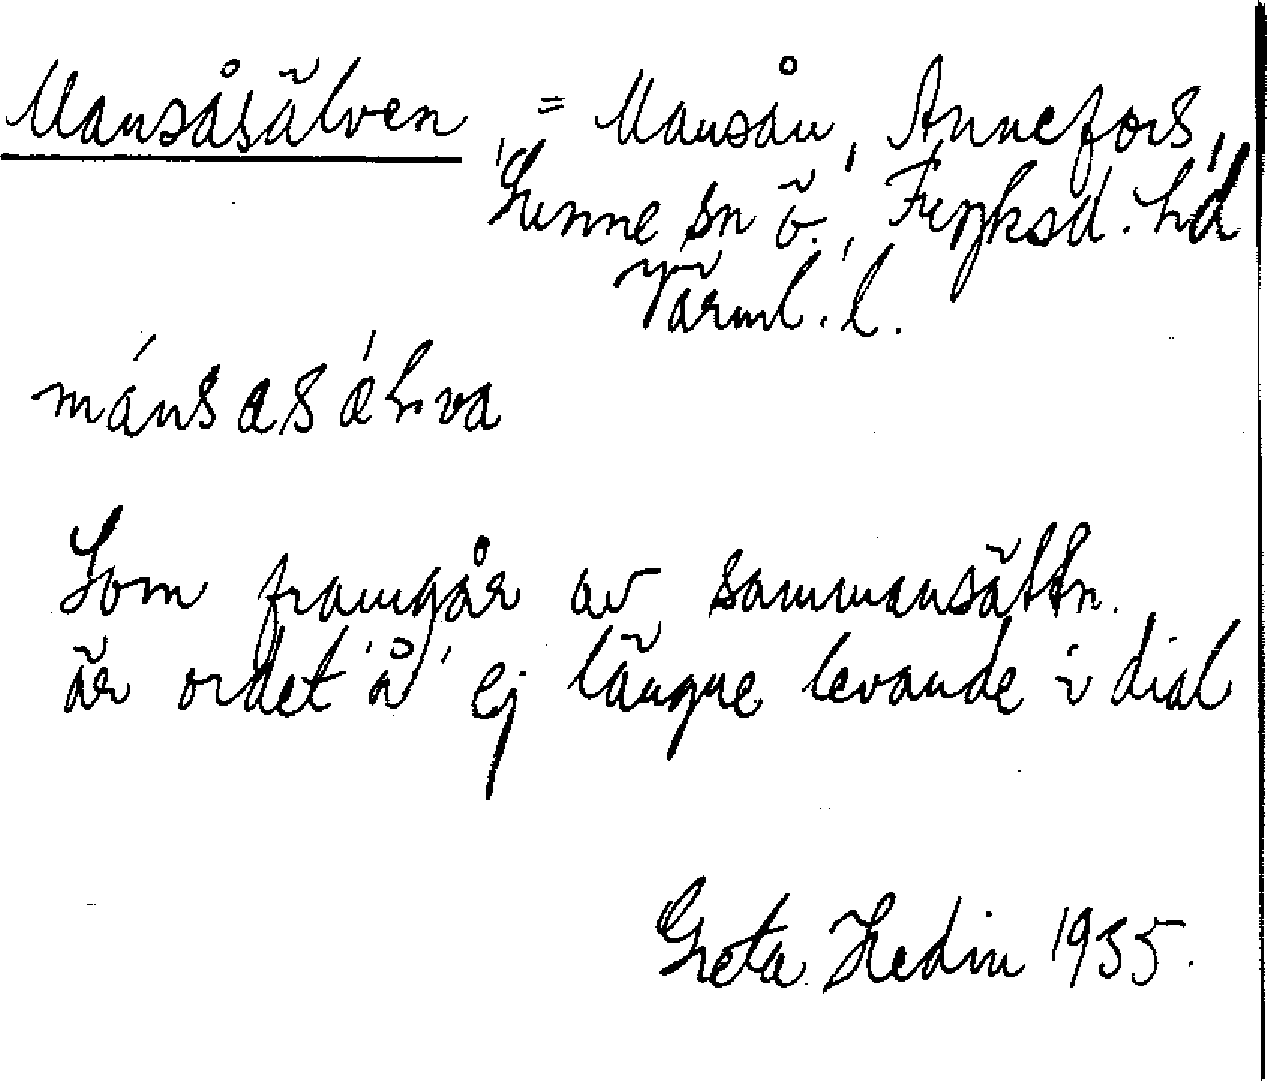 Mansåsälven, = Mansån, Annefors,
Sunne sn ö., Fryksd. hd
Värml. l.
mánsasáḷva
Som framgår av sammansättn.
är ordet 'å' ej längre levande i dial
Greta Hedin 1935.